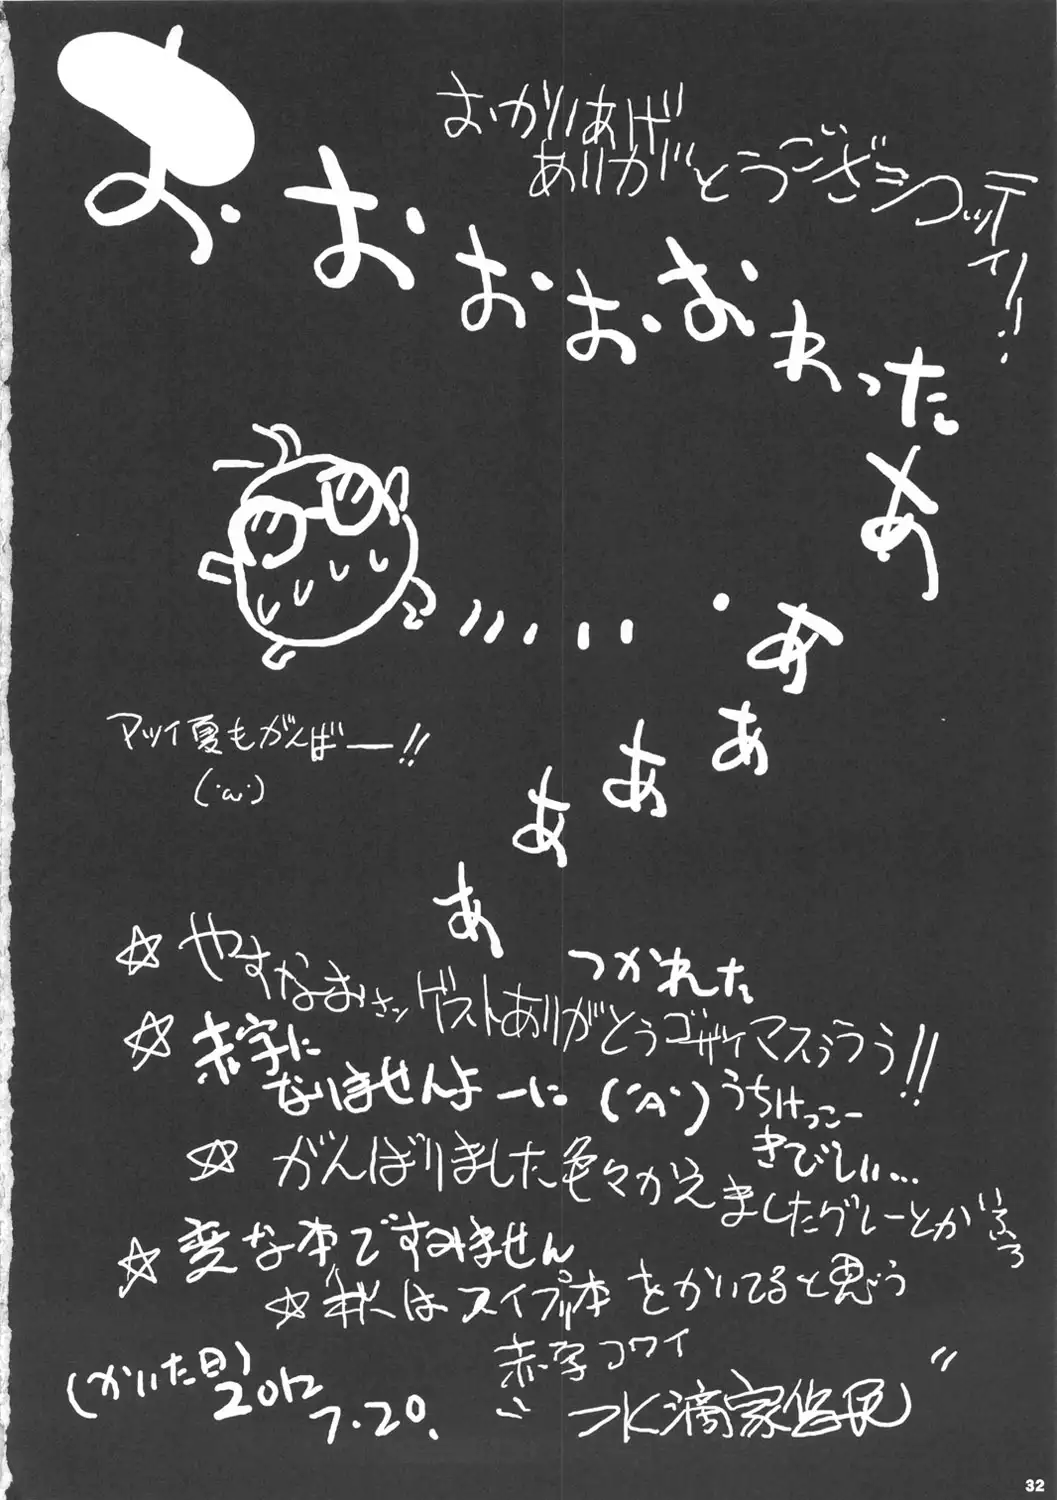 おかりあげ
ありがとうございシコッティ!!
おおおおおわった
ああああああ
アツイ夏もがんばー!!
(·ω·)
つかれた
☆やすなおさンゲストありがとうゴザイマスぅうぅ!!
☆赤字に
なりませんよーに(´A`)うちけっこー
きびしい…
☆がんばりました色々かえましたグレーとか
☆変な本ですみません
☆私はスイプリ本をかいてると思う
赤字コワイ
(かいた日)
2012
7.20.
水滴家
32